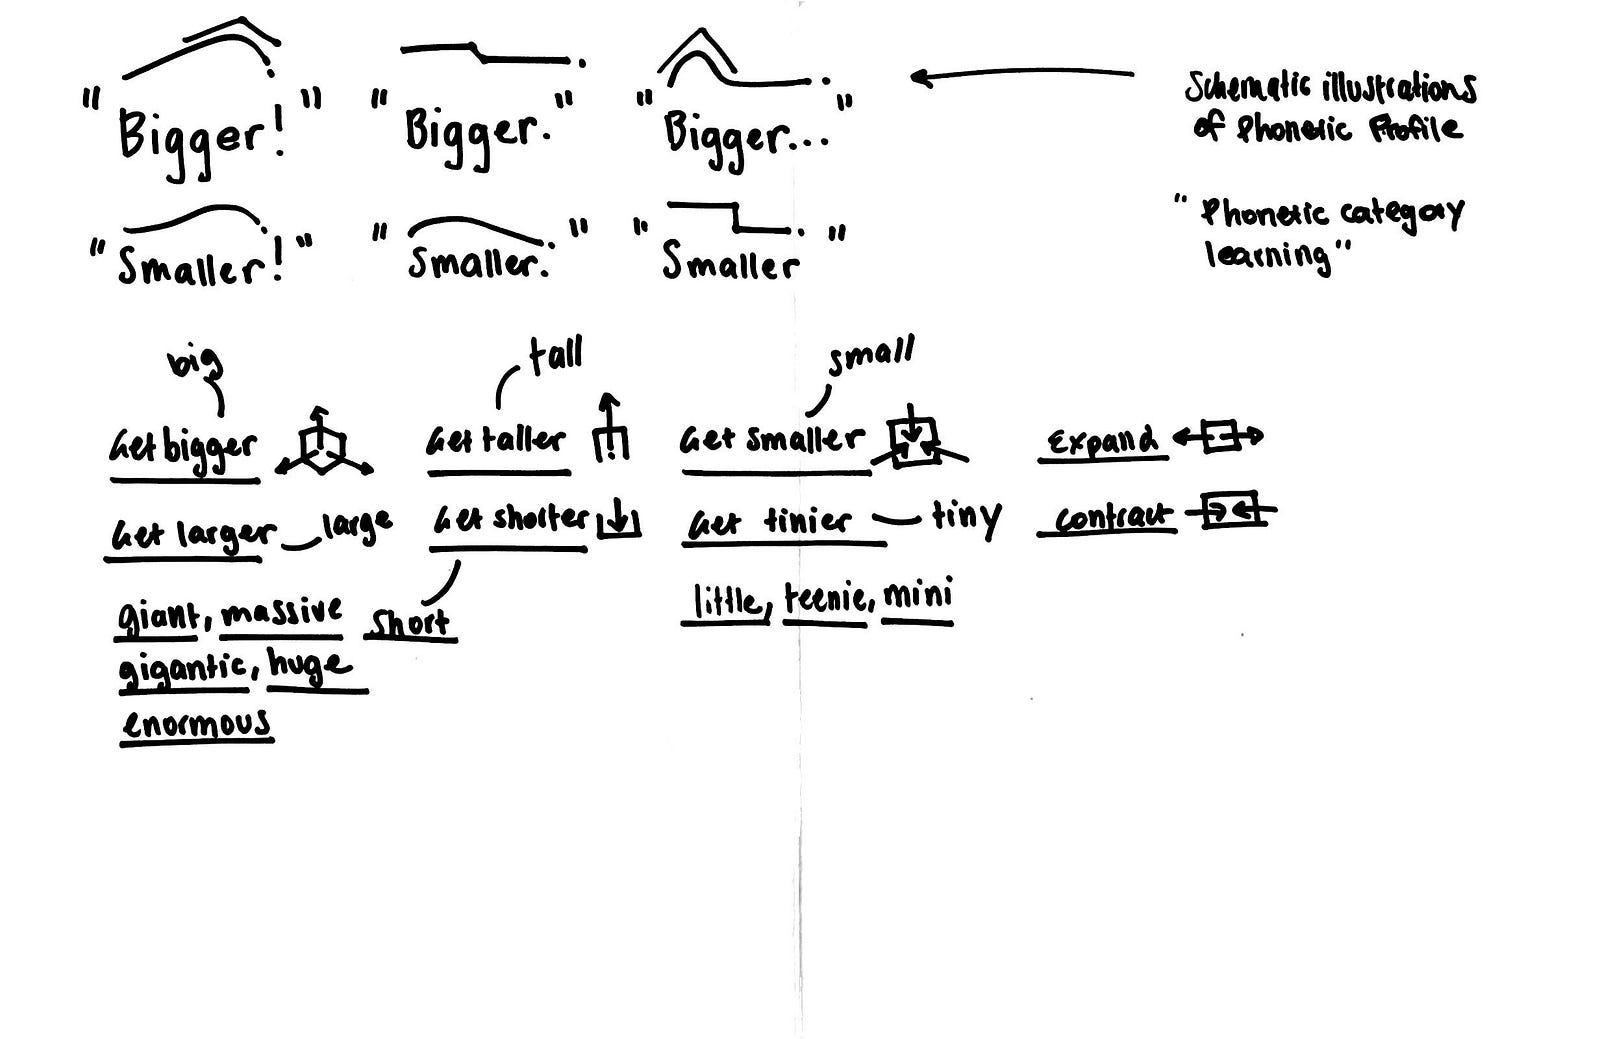 "Bigger!" "Bigger." "Bigger..."
Schematic illustrations
of Phonetic Profile
"Smaller!" "Smaller." "Smaller"
"Phonetic category
learning"
big tall small
Get bigger Get taller Get smaller Expand
Get larger large Get shorter Get tinier tiny contract
giant, massive short little, teenie, mini
gigantic, huge
enormous